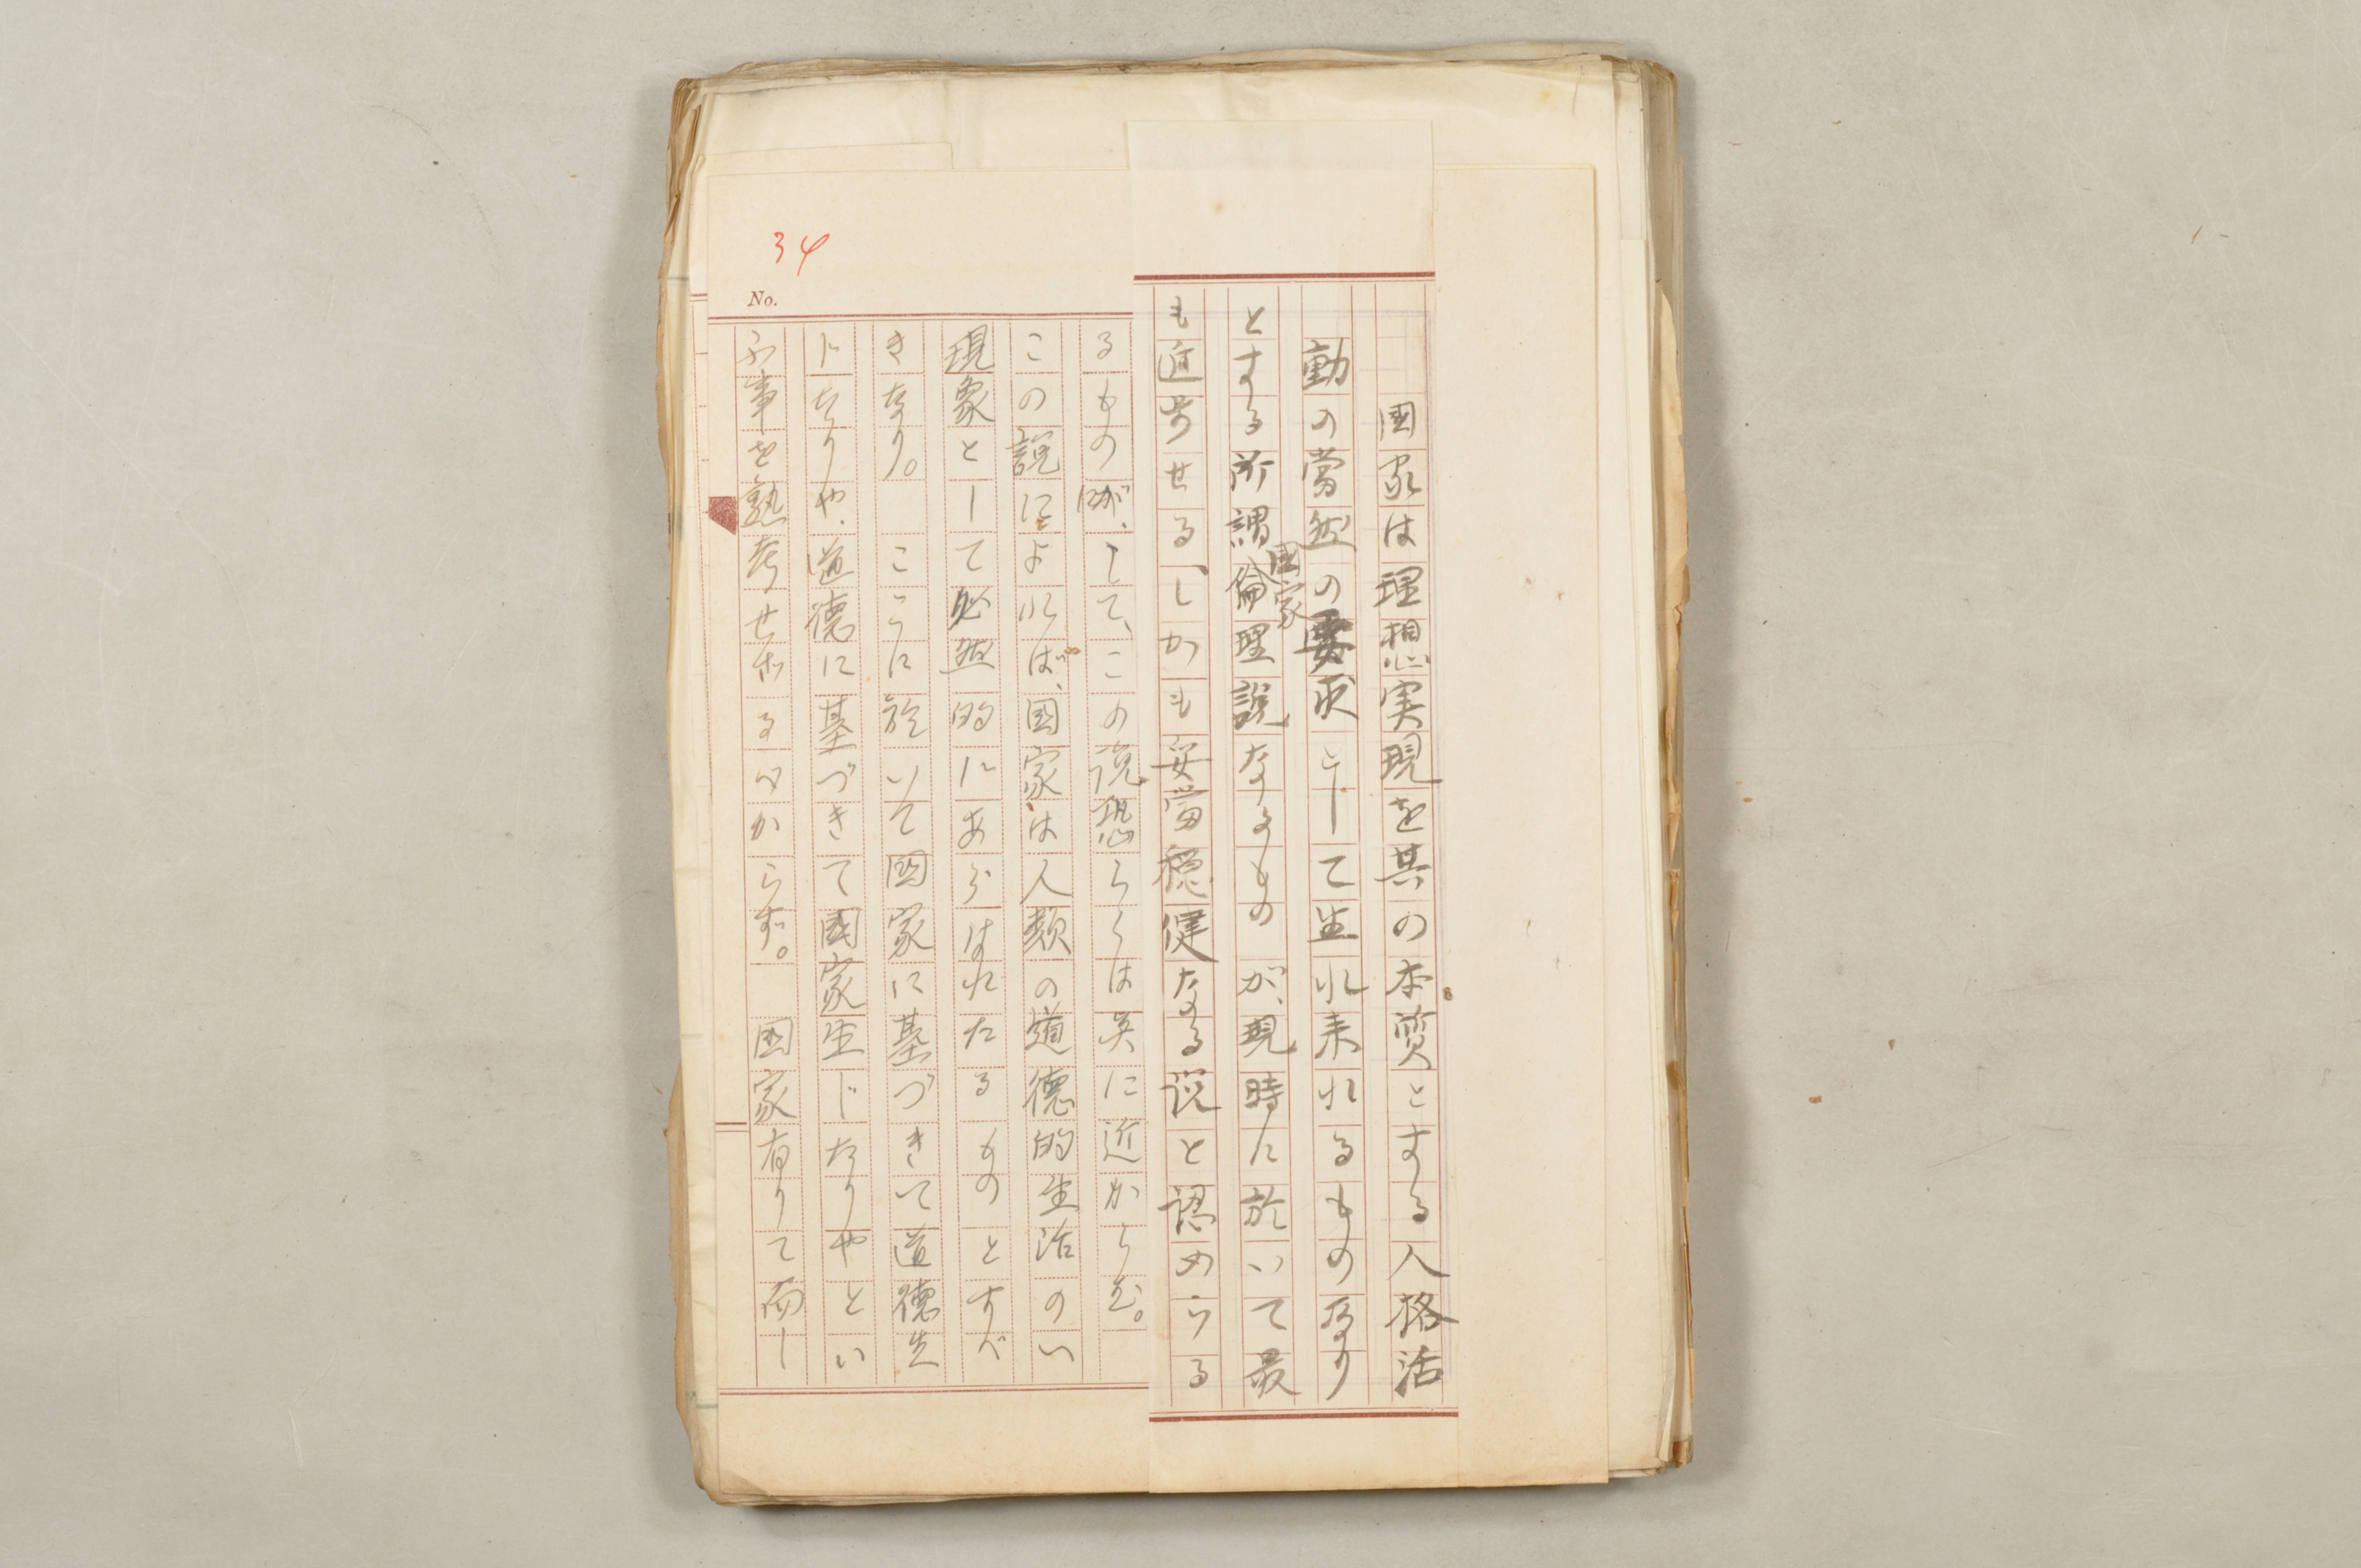 34
No.
国家は理想実現を其の本質とする人格活
動の當然の要求として生れ来れるものなり
とする所謂倫理国家説なるものが、現時に於いて最
も近せる、しかも妥當穏健なる説と認めらる
るものが、して、この説恐らくは真に近からむ。
この説によれば、国家は人類の道徳的生活のい
現象として必然的にあらはれたるものとすべ
きなり。 こゝに於いて国家に基づきて道徳生
じたりや、道徳に基づきて國家生じたりやとい
ふ事を熟考せざるべからず。 国家有りて而し